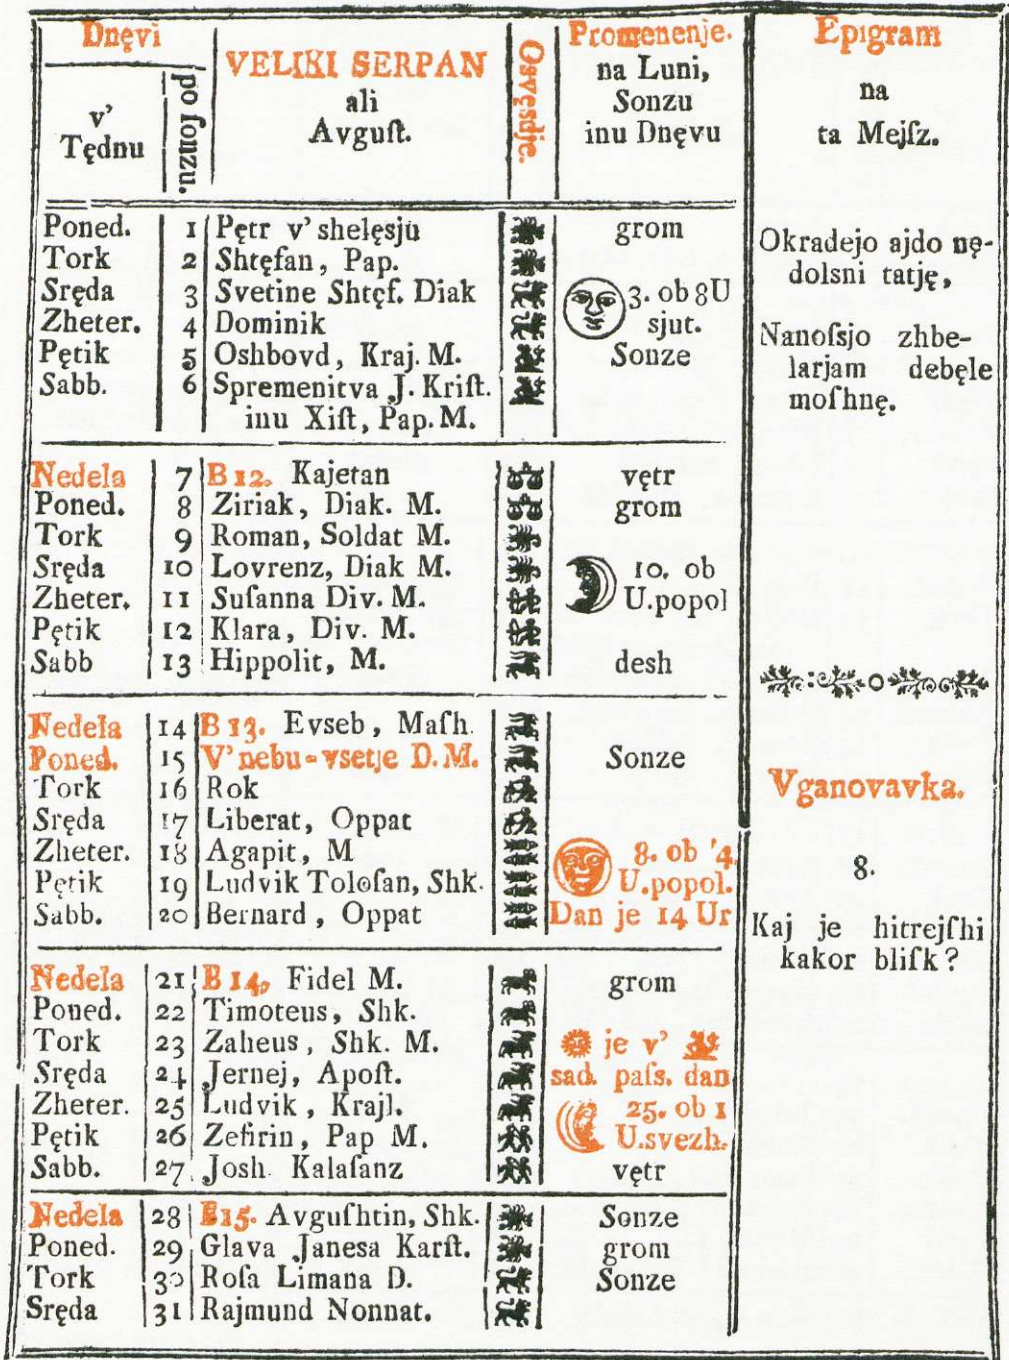 Dnęvi
v’
Tędnu
po ſonzu.
VELIKI SERPAN
ali
Avguſt.
Osvęsdje.
Promenenje.
na Luni,
Sonzu
inu Dnęvu
Epigram
na
ta Mejſz.
Poned. 1 Pętr v’ shelęsju grom
Tork 2 Shtęfan, Pap.
Sręda 3 Svetine Shtęf. Diak 3. ob 8 U
Zheter. 4 Dominik sjut.
Pętik 5 Oshbovd, Kraj. M. Sonze
Sabb. 6 Spremenitva J. Kriſt.
inu Xiſt, Pap. M.
Nedela 7 B 12. Kajetan vętr
Poned. 8 Ziriak, Diak. M. grom
Tork 9 Roman, Soldat M.
Sręda 10 Lovrenz, Diak M. 10. ob
Zheter. 11 Suſanna Div. M. U.popol
Pętik 12 Klara, Div. M.
Sabb 13 Hippolit, M. desh
Nedela 14 B 13. Evseb, Maſh.
Poned. 15 V’ nebu-vsetje D. M. Sonze
Tork 16 Rok
Sręda 17 Liberat, Oppat
Zheter. 18 Agapit, M 8. ob '4
Pętik 19 Ludvik Toloſan, Shk. U.popol.
Sabb. 20 Bernard, Oppat Dan je 14 Ur
Nedela 21 B 14. Fidel M. grom
Poned. 22 Timoteus, Shk.
Tork 23 Zaheus, Shk. M. je v’
Sręda 24 Jernej, Apoſt. sad. paſs. dan
Zheter. 25 Ludvik, Krajl. 25. ob 1
Pętik 26 Zefirin, Pap M. U.svezh.
Sabb. 27 Josh. Kalaſanz vętr
Nedela 28 B15. Avguſhtin, Shk. Sonze
Poned. 29 Glava Janesa Karſt. grom
Tork 30 Roſa Limana D. Sonze
Sręda 31 Rajmund Nonnat.
Okradejo ajdo nę-
dolsni tatję,
Nanoſsjo zhbe-
larjam debęle
moſhnę.
Vganovavka.
8.
Kaj je hitrejſhi
kakor bliſk?